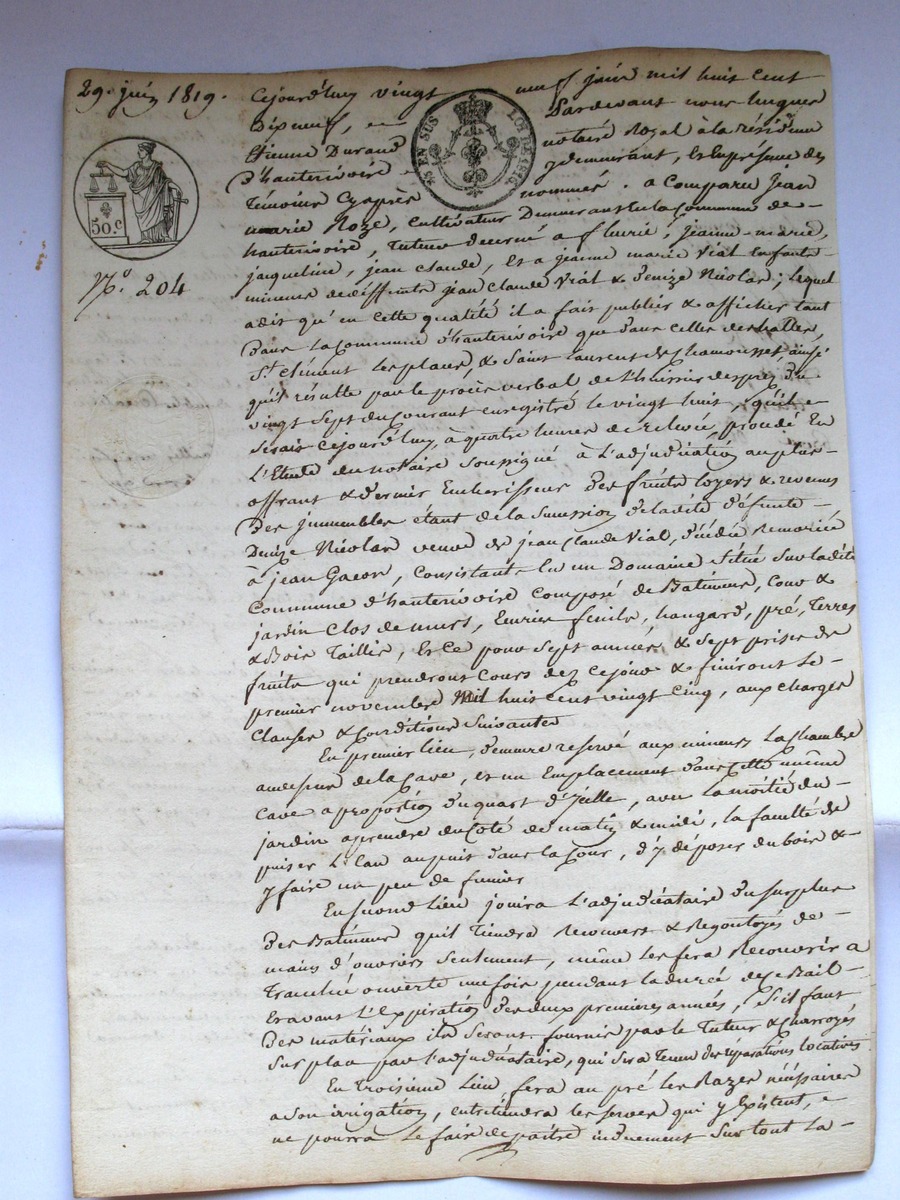 29. juin 1819.
Cejourd'huy vingt neuf juin mil huit cent
Dixneuf, Pardevant nous hugues
Etienne Durand notaire Royal à la résidence
D'hauterivoire y demeurant, Et En présence des
Témoins Cyaprès nommés. a Comparu Jean
marie Roze, Cultivateur Demeurant En la Commune de
hauterivoire, Tuteur decerné a fleurie, jeanne-marie,
jaqueline, jean claude, Et a jeanne marie Vial Enfants
mineurs de deffunts jean Claude Vial & Denize Nicolas; lequel
a dit qu'en Cette qualité il a fait publier & afficher tant
Dans la Commune d'hauterivoire que dans celles des halles,
St. Clément les places, & Saint Laurent de Chamousset, ainsi
qu'il résulte par le procès verbal de l'huissier du
vingt Sept du Courant enregistré le vingt huit, qu'il
Serait Cejourd'huy, à quatre heures de Relevée, procédé En
L'Etude du notaire Soussigné à l'adjudication au plus
offrant & dernier Encherisseur Des fruits loyers & revenus
Des jmmeubles étant de la Succession de ladite Défunte
Denize Nicolas veuve de jean Claude Vial, Décédée Remariée
à jean Gacon, Consistants En un Domaine Situé Sur ladite
Commune d'hauterivoire Composé de Batiments, Cour &
jardin Clos de murs, Ecuries fenils, hangard, pré, Terres
& Bois Taillis, Et Ce pour Sept années & Sept prises de
fruits qui prendront Cours dez Cejour & finiront le
premier novembre Mil huit Cent vingt Cinq, aux charges
Clauses & Conditions Suivantes
En premier lieu, demeure reservé aux mineurs la Chambre
au dessus de la Cave, et un Emplacement dans Cette même
Cave a proportion du quart d'jcelle, avec la moitié du
jardin a prendre du Coté de matin & midi, la faculté de
puiser l'Eau au puit dans la Cour, d'y déposer du bois &
y faire un peu de fumier
En Second Lieu jouira L'adjudicataire du Surplus
Des Batiments qu'il Tiendra Recouvers & Regoutoyés de
mains d'ouvriers Seulement, même les fera Recouvrir a
Tranchée ouverte une fois pendant la durée de ce Bail
Et avant l'Expiration des deux premieres années, S'il faut
Des matériaux ils Seront fournis par le Tuteur & Charroyés
Sur place par l'adjudicataire, qui Sera Tenu des réparations locatives
En Troisieme Lieu fera au pré les Razes nécéssaires
a Son irrigation, entretiendra les serves qui y Existent,
ne pourra le faire depaitre induement Sur tout la
50.c
EN SUS LOI DE 1816
No. 204